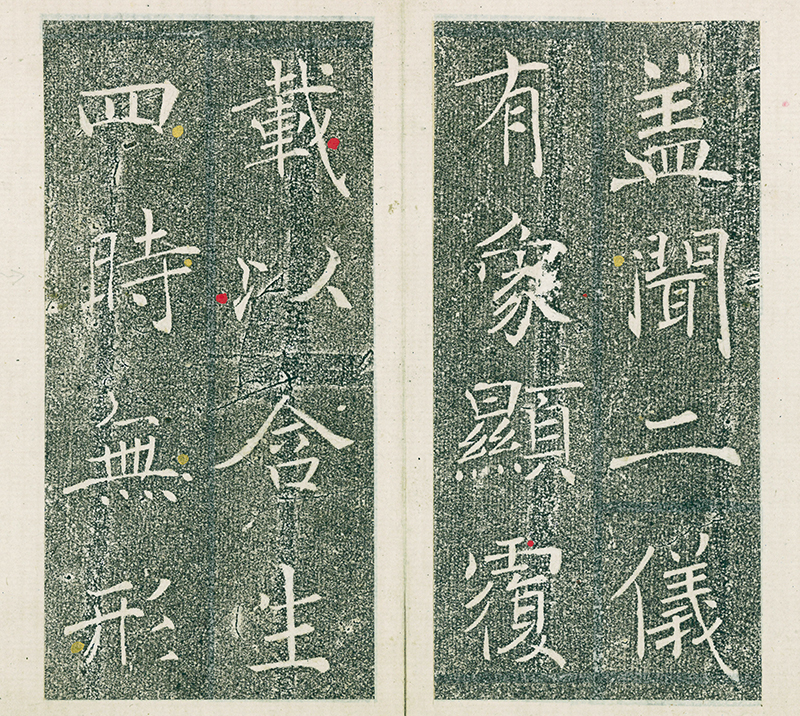 盖聞二儀
有象顯覆
載以含生
四時無形